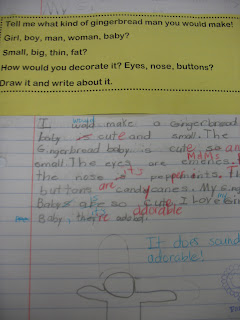 Tell me what kind of gingerbread man you would make!
Girl, boy, man, woman, baby?
Small, big, thin, fat?
How would you decorate it? Eyes, nose, buttons?
Draw it and write about it.
I would make a Gingerbread
baby is cute and small. The
Gingerbread baby is cute so an
small The eyes are M&Ms
the nose is peppermints. Th
buttons are candy canes. My
Babys are so cute. I Love
Baby, they're adorable
It does sound
adorable!